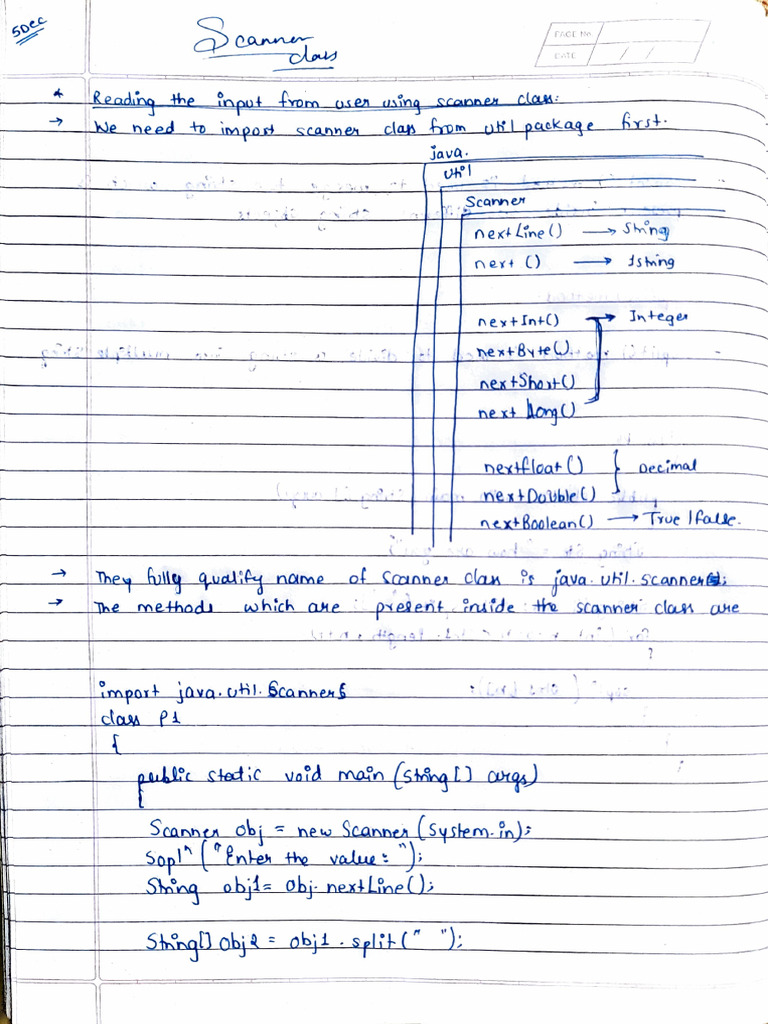 5 Dec
Scanner
class
PAGE No.
DATE / /
* Reading the input from user using scanner class:
→ We need to import scanner class from util package first.
java.
util
Scanner
nextLine() → String
next () → 1string
nextInt() → Integer
nextByte()
nextShort()
next Long()
nextfloat() } Decimal
nextDouble()
nextBoolean() → True/false.
→ They fully qualify name of scanner class is java.util.scanner;
→ The methods which are present inside the scanner class are
?
import java.util.Scanner;
class P1
{
public static void main (String[] args)
{
Scanner obj = new Scanner (System.in);
Sopln ("Enter the value: ");
String obj1 = obj.nextLine();
String[] obj2 = obj1.split(" ");